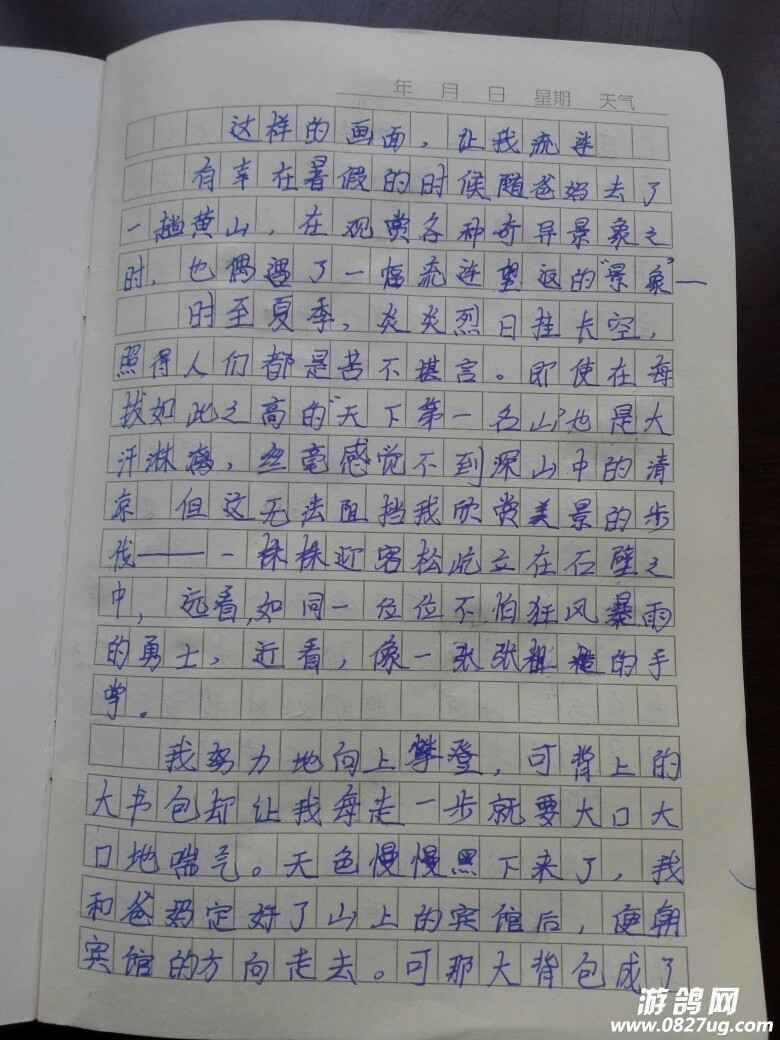 年 月 日 星期 天气
这样的画面，让我流连
有幸在暑假的时候随爸妈去了
一趟黄山，在观赏各种奇异景象之
时，也偶遇了一幅流连望返的“景象”—
时至夏季，炎炎烈日挂长空，
照得人们都是苦不堪言。即使在每
拔如此之高的“天下第一名山”也是大
汗淋漓，丝毫感觉不到深山中的清
凉 但这无法阻挡我欣赏美景的步
伐——一株株迎客松屹立在石壁之
中，远看，如同一位位不怕狂风暴雨
的勇士，近看，像一张张粗糙的手
掌。
我努力地向上攀登，可背上的
大书包却让我每走一步就要大口大
口地喘气。天色慢慢黑下来了，我
和爸妈定好了山上的宾馆后，便朝
宾馆的方向走去。可那大背包成了
游鸽网
www.0827ug.com